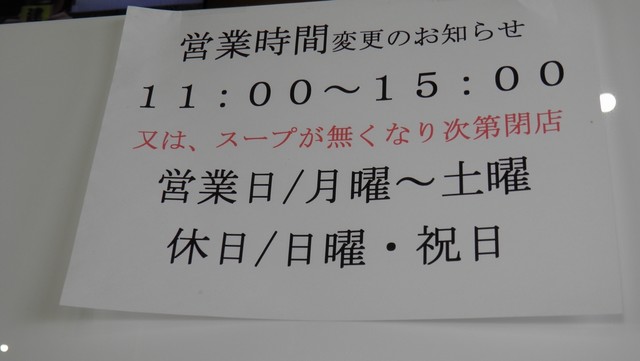 営業時間変更のお知らせ
11:00～15:00
又は、スープが無くなり次第閉店
営業日/月曜～土曜
休日/日曜・祝日